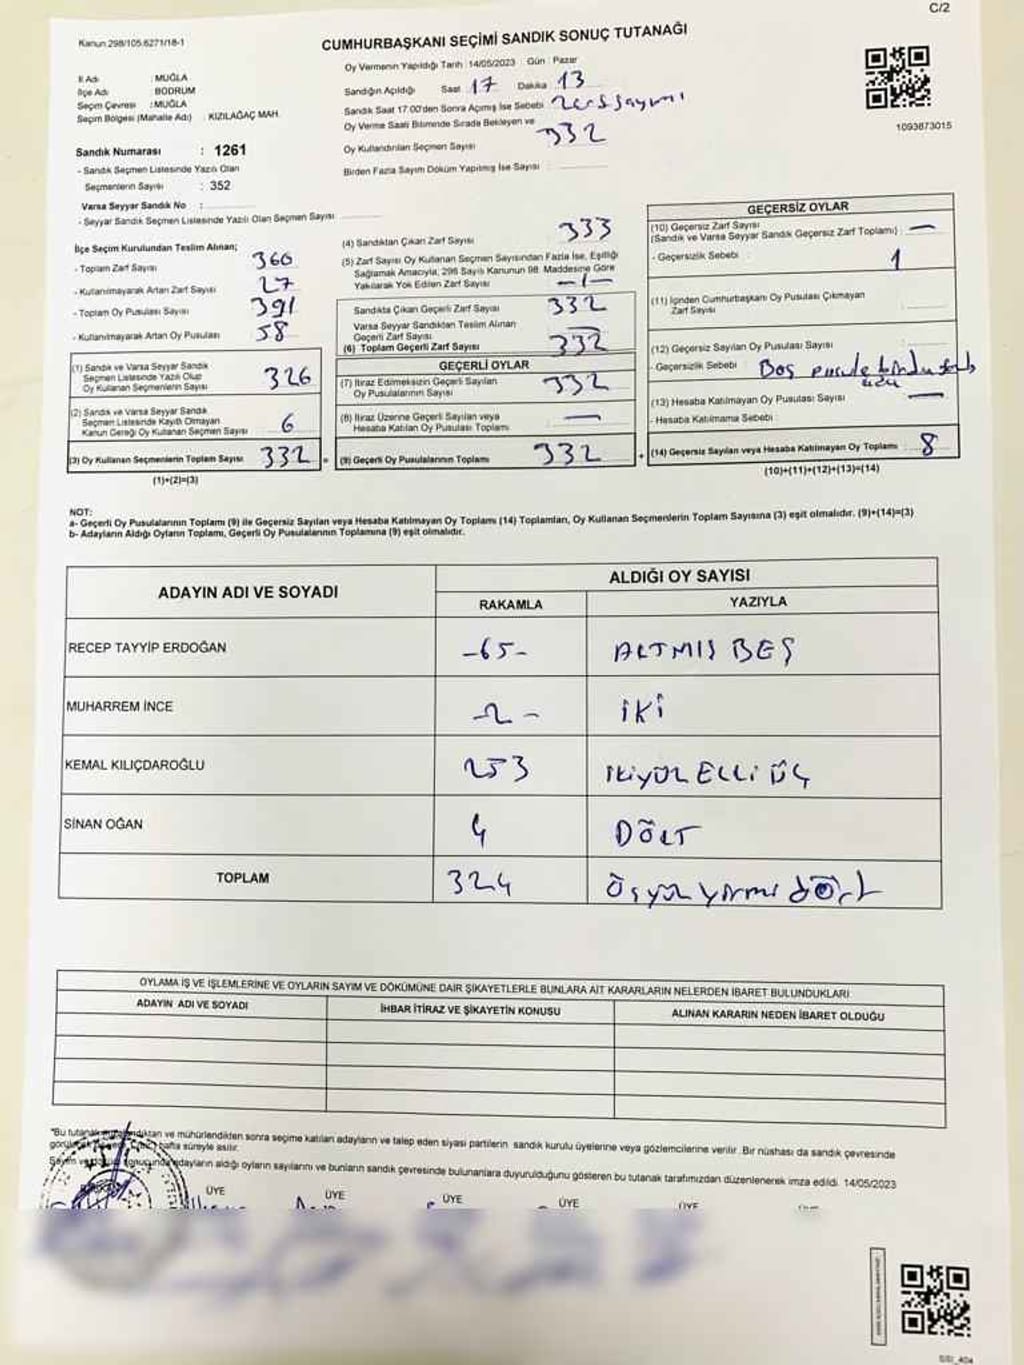 C/2
Kanun:298/105.6271/18-1
CUMHURBAŞKANI SEÇİMİ SANDIK SONUÇ TUTANAĞI
İl Adı : MUĞLA
İlçe Adı : BODRUM
Seçim Çevresi : MUĞLA
Seçim Bölgesi (Mahalle Adı) : KIZILAĞAÇ MAH.
Sandık Numarası : 1261
- Sandık Seçmen Listesinde Yazılı Olan
Seçmenlerin Sayısı : 352
Varsa Seyyar Sandık No :
- Seyyar Sandık Seçmen Listesinde Yazılı Olan Seçmen Sayısı
Oy Vermenin Yapıldığı Tarih : 14/05/2023 Gün : Pazar
Sandığın Açıldığı Saat 17 Dakika 13
Sandık Saat 17.00'den Sonra Açımış İse Sebebi
Oy Verme Saati Bitiminde Sırada Bekleyen ve
Oy Kullandırılan Seçmen Sayısı 332
Birden Fazla Sayım Döküm Yapılmış İse Sayısı :
1093873015
İlçe Seçim Kurulundan Teslim Alınan;
- Toplam Zarf Sayısı 360
- Kullanılmayarak Artan Zarf Sayısı 27
- Toplam Oy Pusulası Sayısı 391
- Kullanılmayarak Artan Oy Pusulası 58
(1) Sandık ve Varsa Seyyar Sandık
Seçmen Listesinde Yazılı Olup
Oy Kullanan Seçmenlerin Sayısı 326
(2) Sandık ve Varsa Seyyar Sandık
Seçmen Listesinde Kayıtlı Olmayan
Kanun Gereği Oy Kullanan Seçmen Sayısı 6
(3) Oy Kullanan Seçmenlerin Toplam Sayısı 332 =
(1)+(2)=(3)
(4) Sandıktan Çıkan Zarf Sayısı 333
(5) Zarf Sayısı Oy Kullanan Seçmen Sayısından Fazla İse, Eşitliği
Sağlamak Amacıyla, 298 Sayılı Kanunun 98. Maddesine Göre
Yakılarak Yok Edilen Zarf Sayısı -1-
Sandıkta Çıkan Geçerli Zarf Sayısı 332
Varsa Seyyar Sandıktan Teslim Alınan
Geçerli Zarf Sayısı —
(6) Toplam Geçerli Zarf Sayısı 332
GEÇERLİ OYLAR
(7) İtiraz Edilmeksizin Geçerli Sayılan
Oy Pusulalarının Sayısı 332
(8) İtiraz Üzerine Geçerli Sayılan veya
Hesaba Katılan Oy Pusulası Toplamı —
(9) Geçerli Oy Pusulalarının Toplamı 332 +
GEÇERSİZ OYLAR
(10) Geçersiz Zarf Sayısı
(Sandık ve Varsa Seyyar Sandık Geçersiz Zarf Toplamı) : —
- Geçersizlik Sebebi : 1
(11) İçinden Cumhurbaşkanı Oy Pusulası Çıkmayan
Zarf Sayısı
(12) Geçersiz Sayılan Oy Pusulası Sayısı :
- Geçersizlik Sebebi : Boş
(13) Hesaba Katılmayan Oy Pusulası Sayısı : —
- Hesaba Katılmama Sebebi :
(14) Geçersiz Sayılan veya Hesaba Katılmayan Oy Toplamı 8
(10)+(11)+(12)+(13)=(14)
NOT:
a- Geçerli Oy Pusulalarının Toplamı (9) ile Geçersiz Sayılan veya Hesaba Katılmayan Oy Toplamı (14) Toplamları, Oy Kullanan Seçmenlerin Toplam Sayısına (3) eşit olmalıdır. (9)+(14)=(3)
b- Adayların Aldığı Oyların Toplamı, Geçerli Oy Pusulalarının Toplamına (9) eşit olmalıdır.
ADAYIN ADI VE SOYADI ALDIĞI OY SAYISI
RAKAMLA YAZIYLA
RECEP TAYYİP ERDOĞAN -65- ALTMIŞ BEŞ
MUHARREM İNCE -2- İKİ
KEMAL KILIÇDAROĞLU 253 İKİYÜZ ELLİ ÜÇ
SİNAN OĞAN 4 DÖRT
TOPLAM 324 Üçyüz yirmi dört
OYLAMA İŞ VE İŞLEMLERİNE VE OYLARIN SAYIM VE DÖKÜMÜNE DAİR ŞİKAYETLERLE BUNLARA AİT KARARLARIN NELERDEN İBARET BULUNDUKLARI
ADAYIN ADI VE SOYADI İHBAR İTİRAZ VE ŞİKAYETİN KONUSU ALINAN KARARIN NEDEN İBARET OLDUĞU
*Bu tutanak ve mühürlendikten sonra seçime katılan adayların ve talep eden siyasi partilerin sandık kurulu üyelerine veya gözlemcilerine verilir. Bir nüshası da sandık çevresinde
hafta süreyle asılır.
adayların aldığı oyların sayılarını ve bunların sandık çevresinde bulunanlara duyurulduğunu gösteren bu tutanak tarafımızdan düzenlenerek imza edildi. 14/05/2023
ÜYE ÜYE ÜYE ÜYE ÜYE